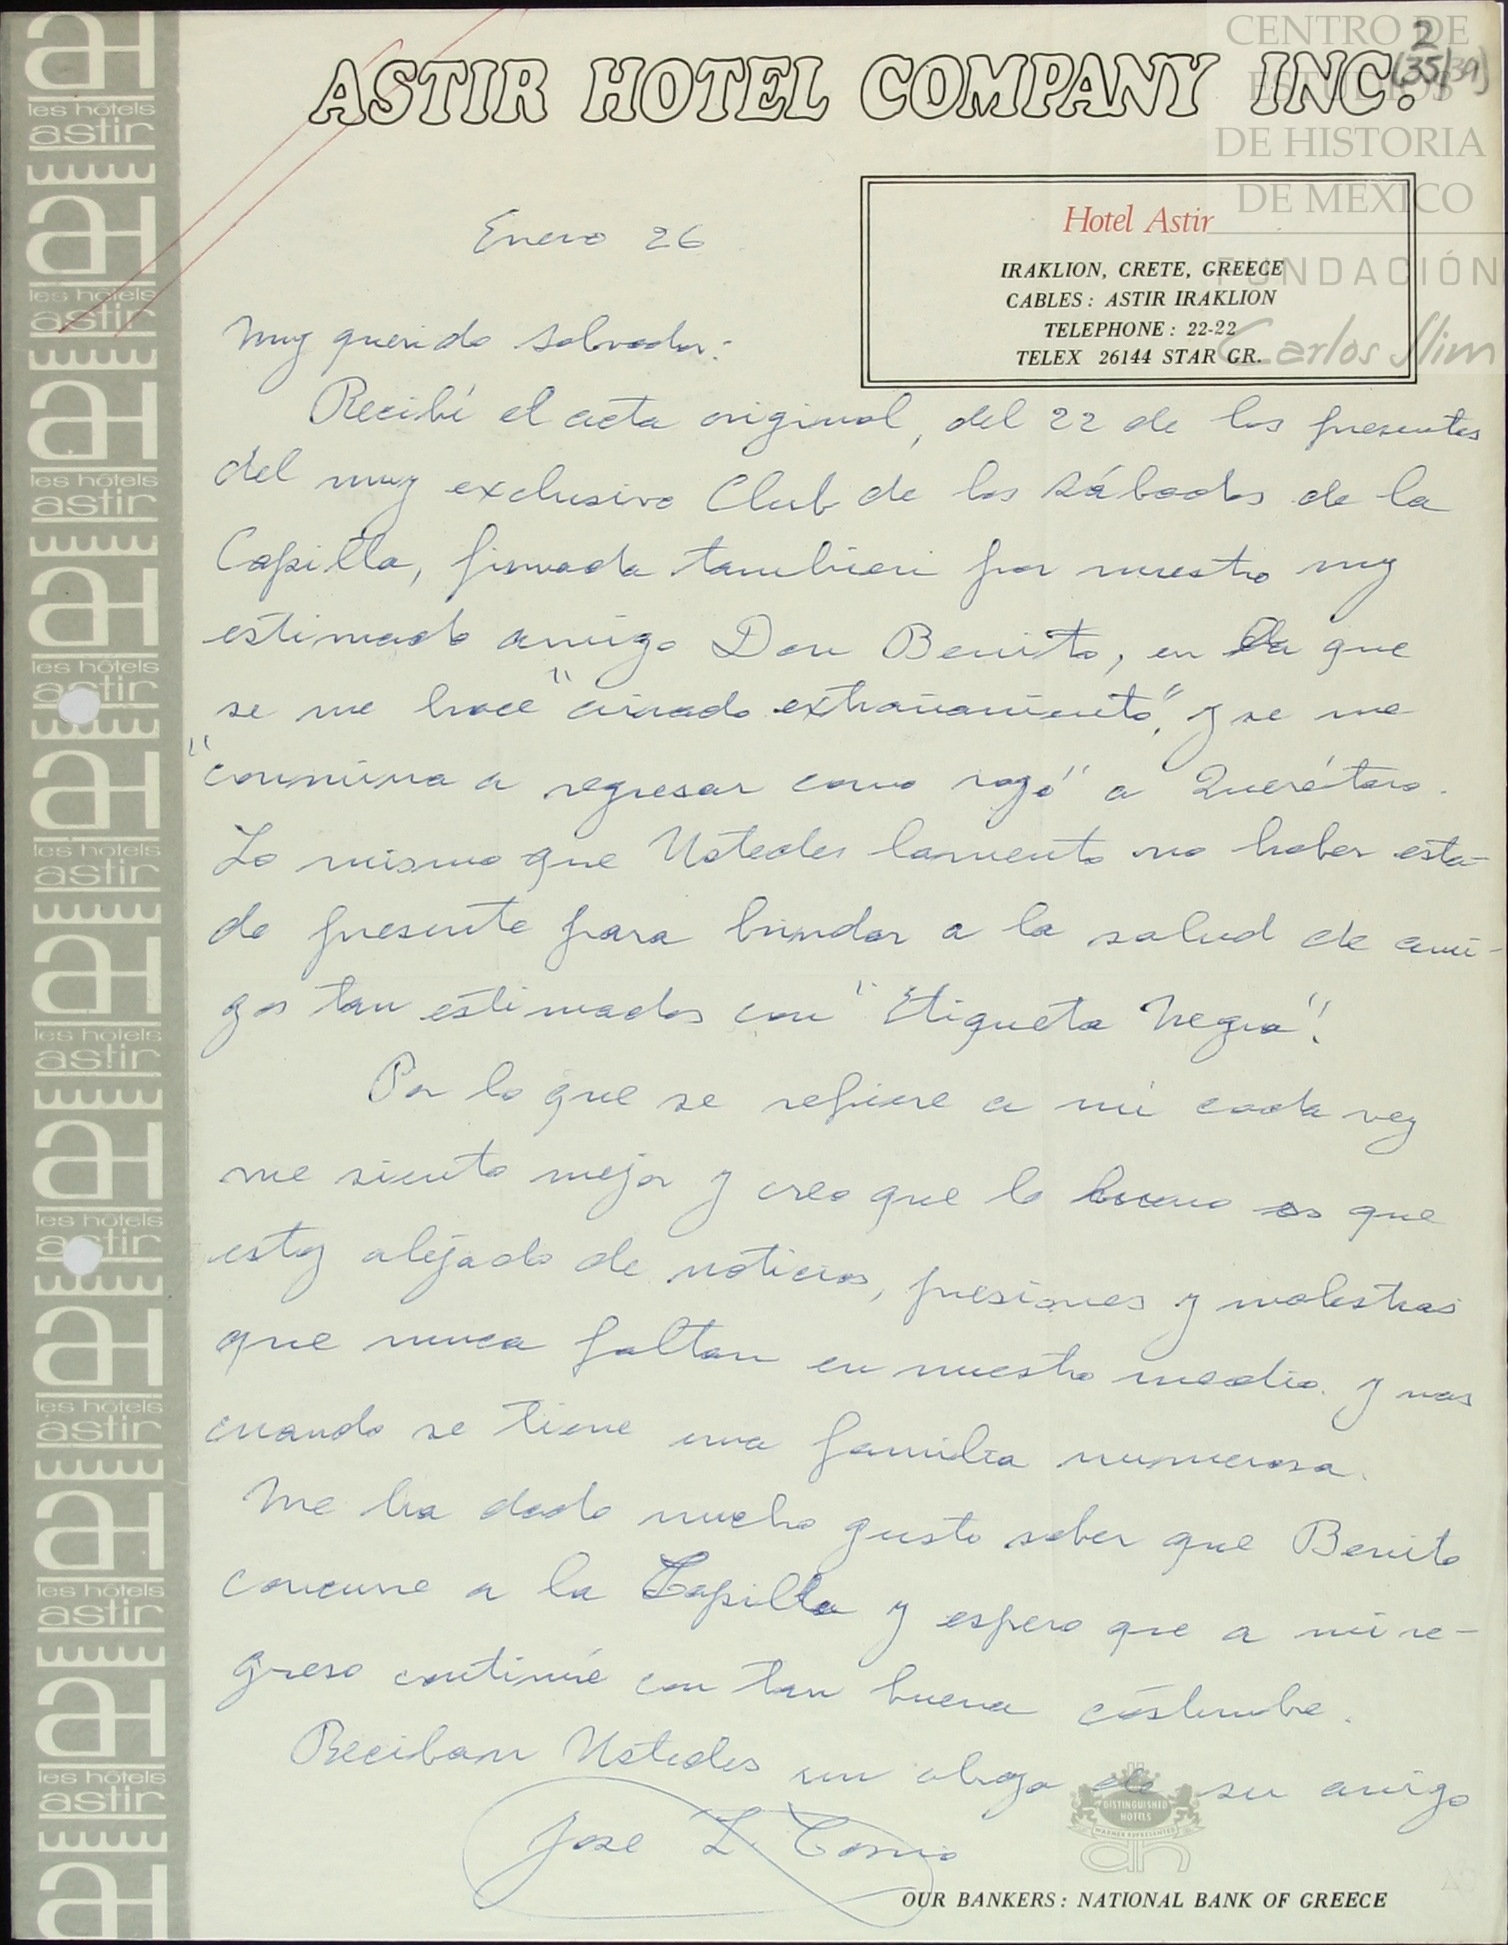 CENTRO DE
ESTUDIOS
DE HISTORIA
DE MÉXICO
FUNDACIÓN
Carlos Slim
2
(35/39)
ASTIR HOTEL COMPANY INC.
Hotel Astir
IRAKLION, CRETE, GREECE
CABLES : ASTIR IRAKLION
TELEPHONE : 22-22
TELEX 26144 STAR GR.
les hôtels
astir
Enero 26
Muy querido Salvador:
Recibí el acta original, del 22 de los presentes
del muy exclusivo Club de los Sábados de la
Capilla, firmada tambien por nuestro muy
estimado amigo Don Benito, en la que
se me hace "airado extrañamiento", y se me
"conmina a regresar como rayo" a Querétaro.
Lo mismo que Ustedes lamento no haber esta-
do presente para brindar a la salud de ami-
gos tan estimados con "Etiqueta Negra"!
Por lo que se refiere a mí cada vez
me siento mejor y creo que lo bueno es que
estoy alejado de noticias, presiones y molestias
que nunca faltan en nuestro medio. y mas
cuando se tiene una familia numerosa.
Me ha dado mucho gusto saber que Benito
concurre a la Capilla y espero que a mi re-
greso continúe con tan buena costumbre.
Reciban Ustedes un abrazo de su amigo
Jose L.
DISTINGUISHED
HOTELS
dh
OUR BANKERS : NATIONAL BANK OF GREECE